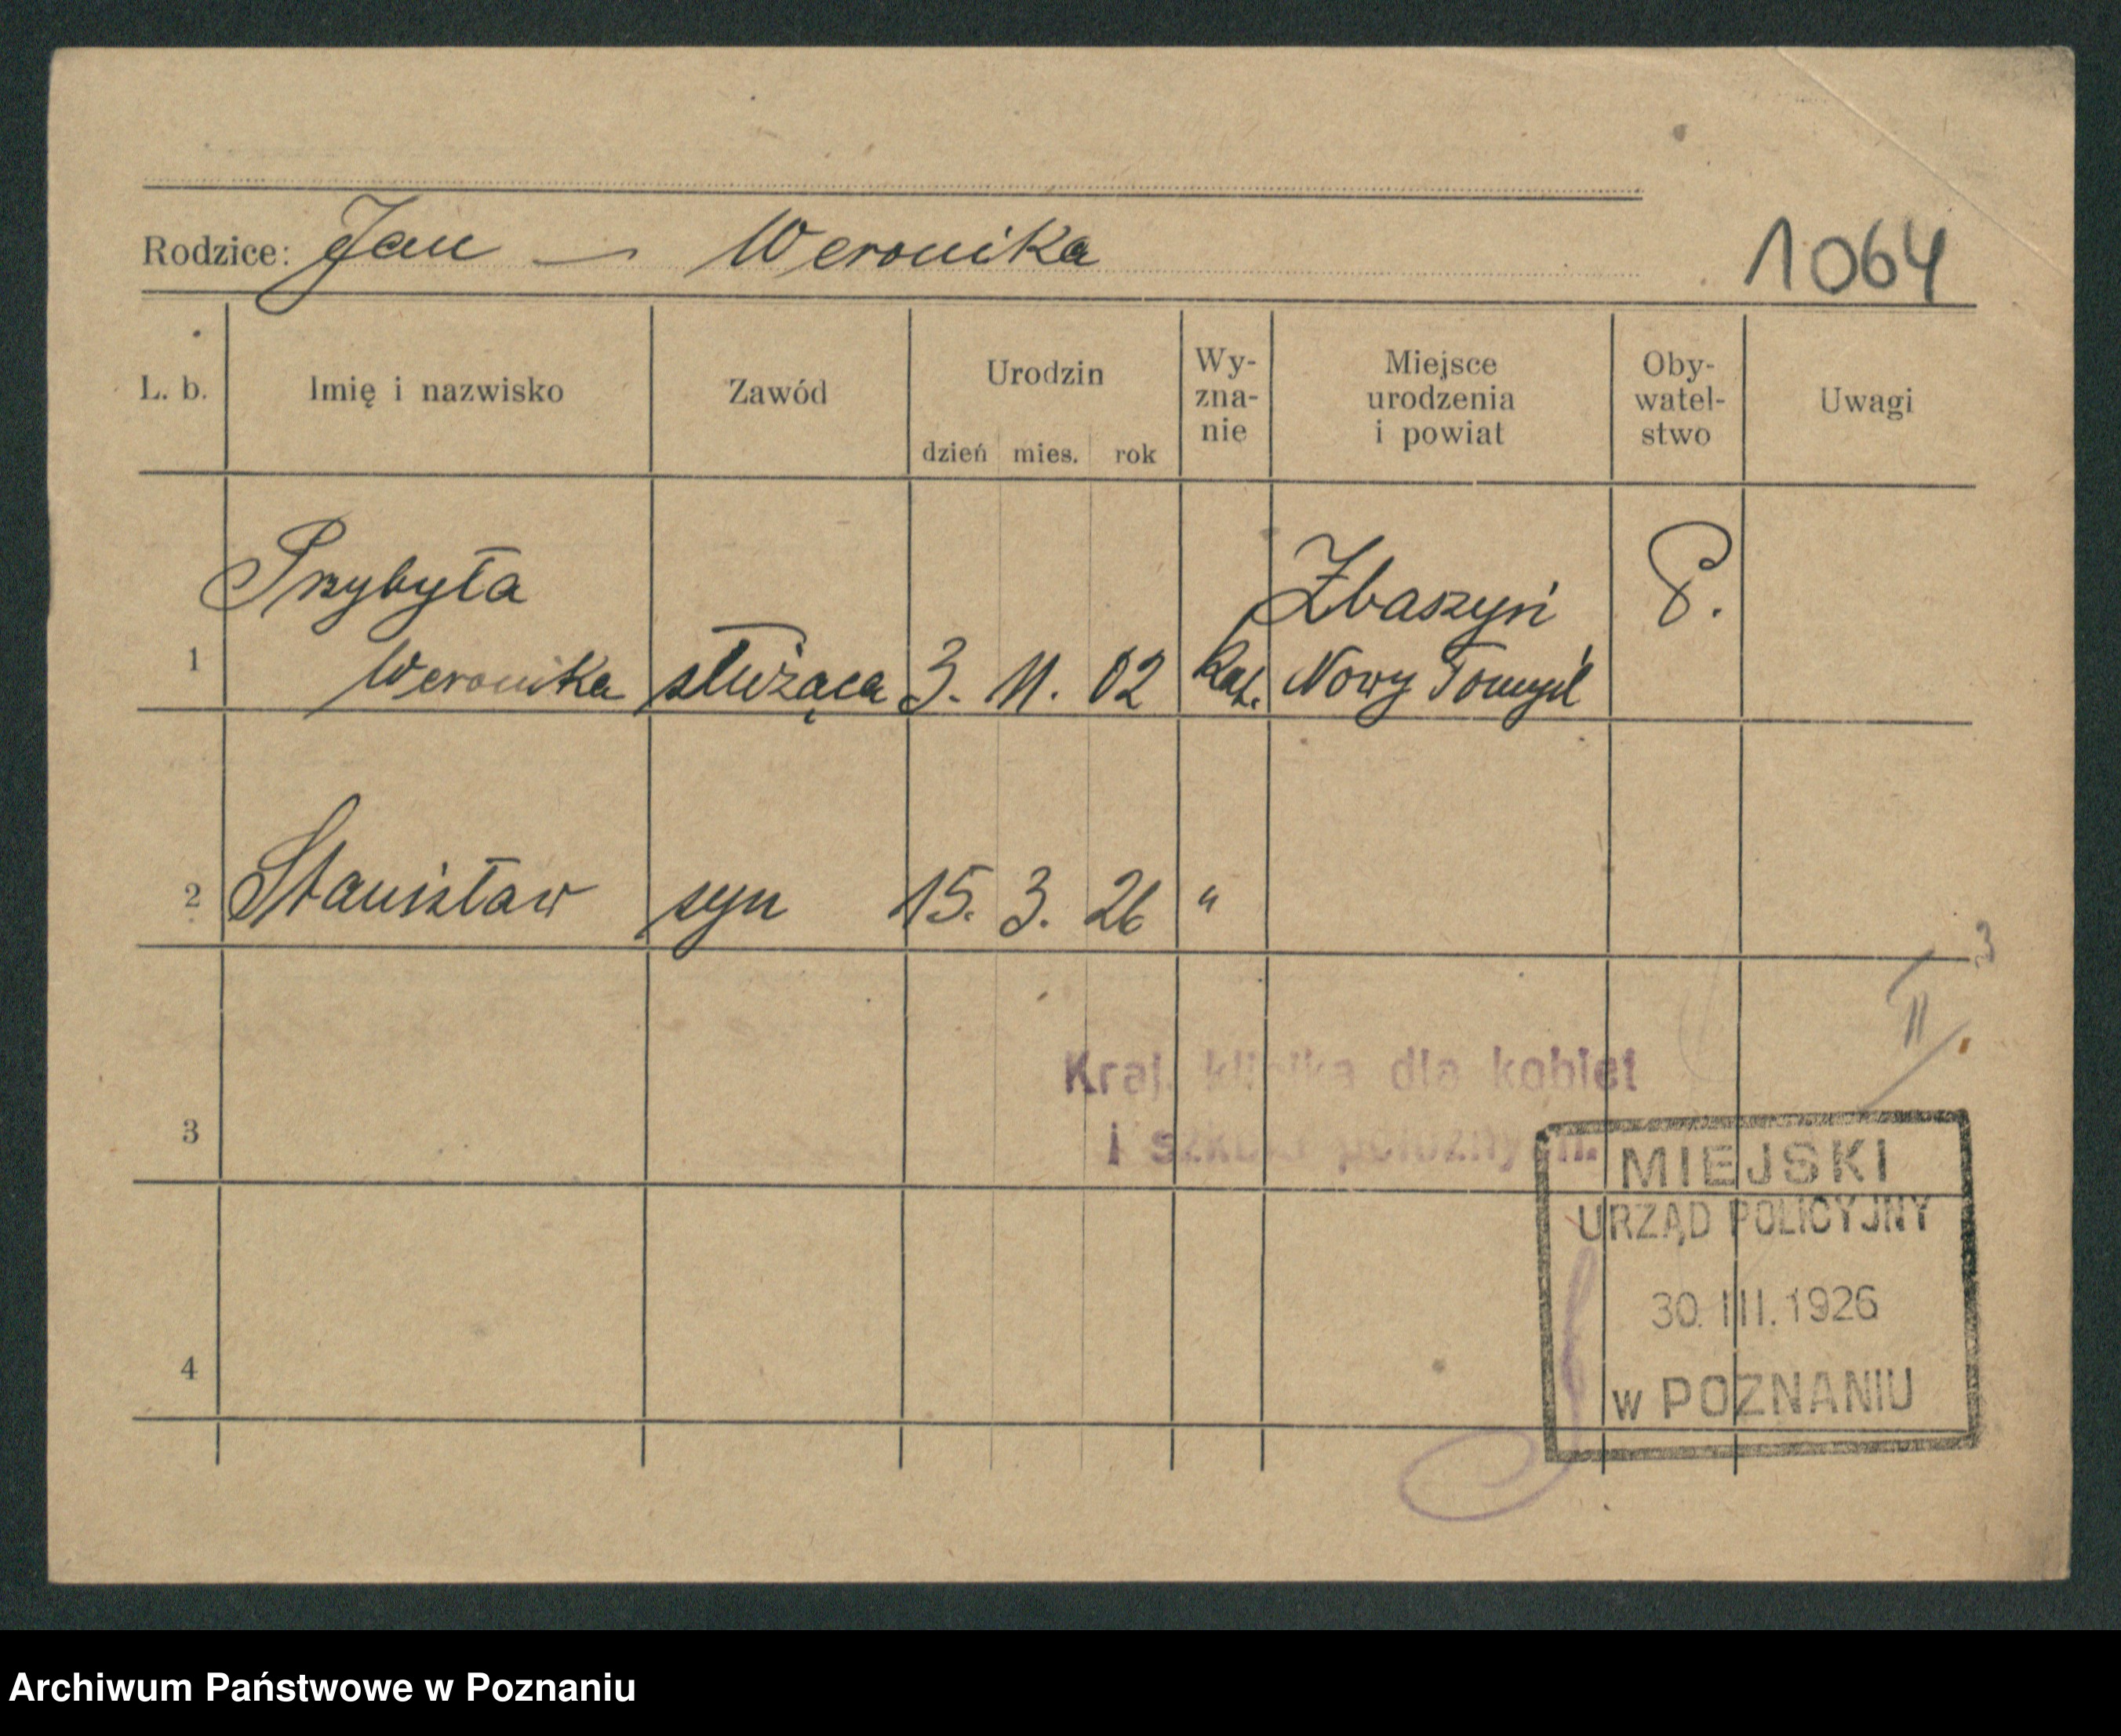 Rodzice: Jan — Weronika
1064
L. b. Imię i nazwisko Zawód Urodzin dzień mies. rok Wy-
zna-
nie Miejsce
urodzenia
i powiat Oby-
watel-
stwo Uwagi
Przybyła Zbaszyń P.
1 Weronika służąca 3. 11. 02 kat. Nowy Tomyśl
2 Stanisław syn 15. 3. 26 "
3
II
Kraj. klinika dla kobiet
i szkoła położnych.
3
MIEJSKI
URZĄD POLICYJNY
30. III. 1926
w POZNANIU
4
Archiwum Państwowe w Poznaniu